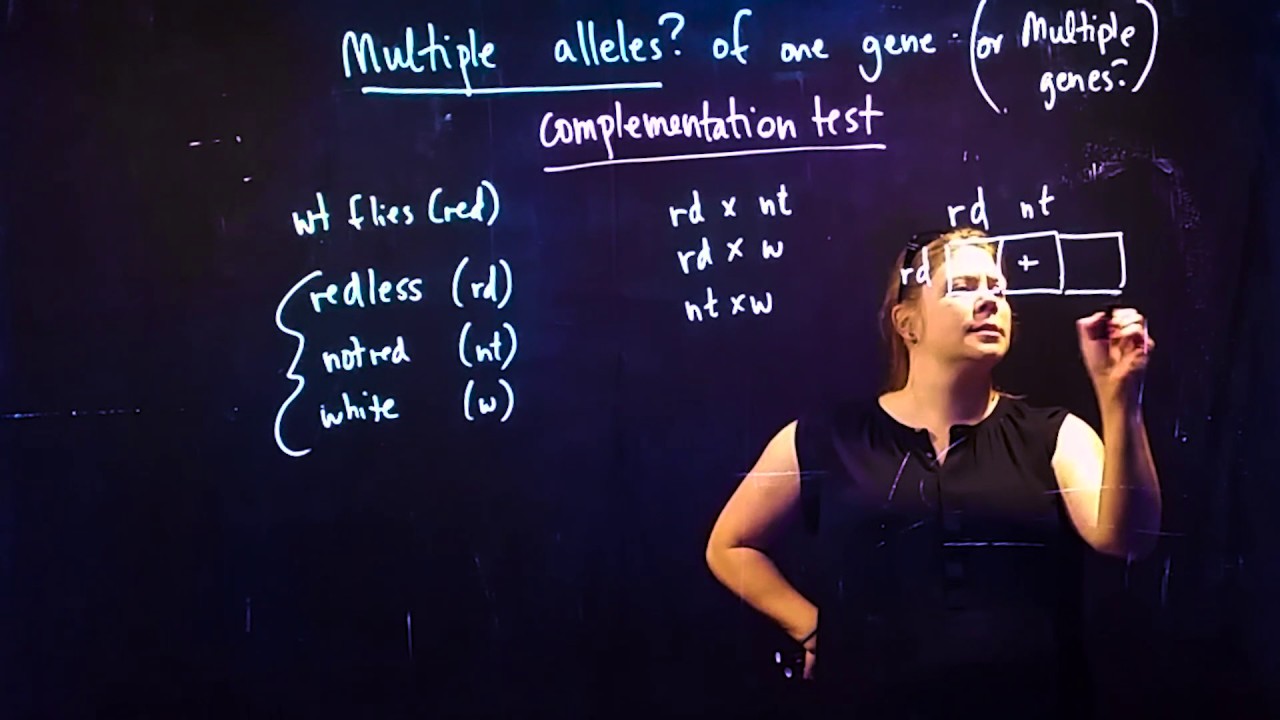 Multiple alleles? of one gene. (or Multiple genes?)
complementation test
wt flies (red)
redless (rd)
notred (nt)
white (w)
rd x nt
rd x w
nt x w
rd nt
rd +